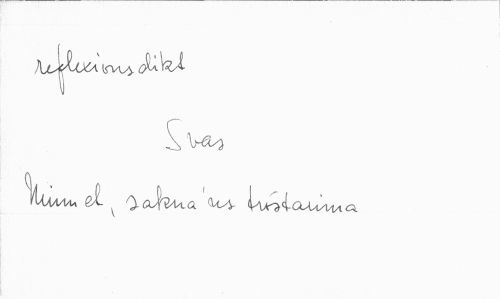 reflexionsdikt
Svas
Minnet, saknaŕ'ns tröstarinna